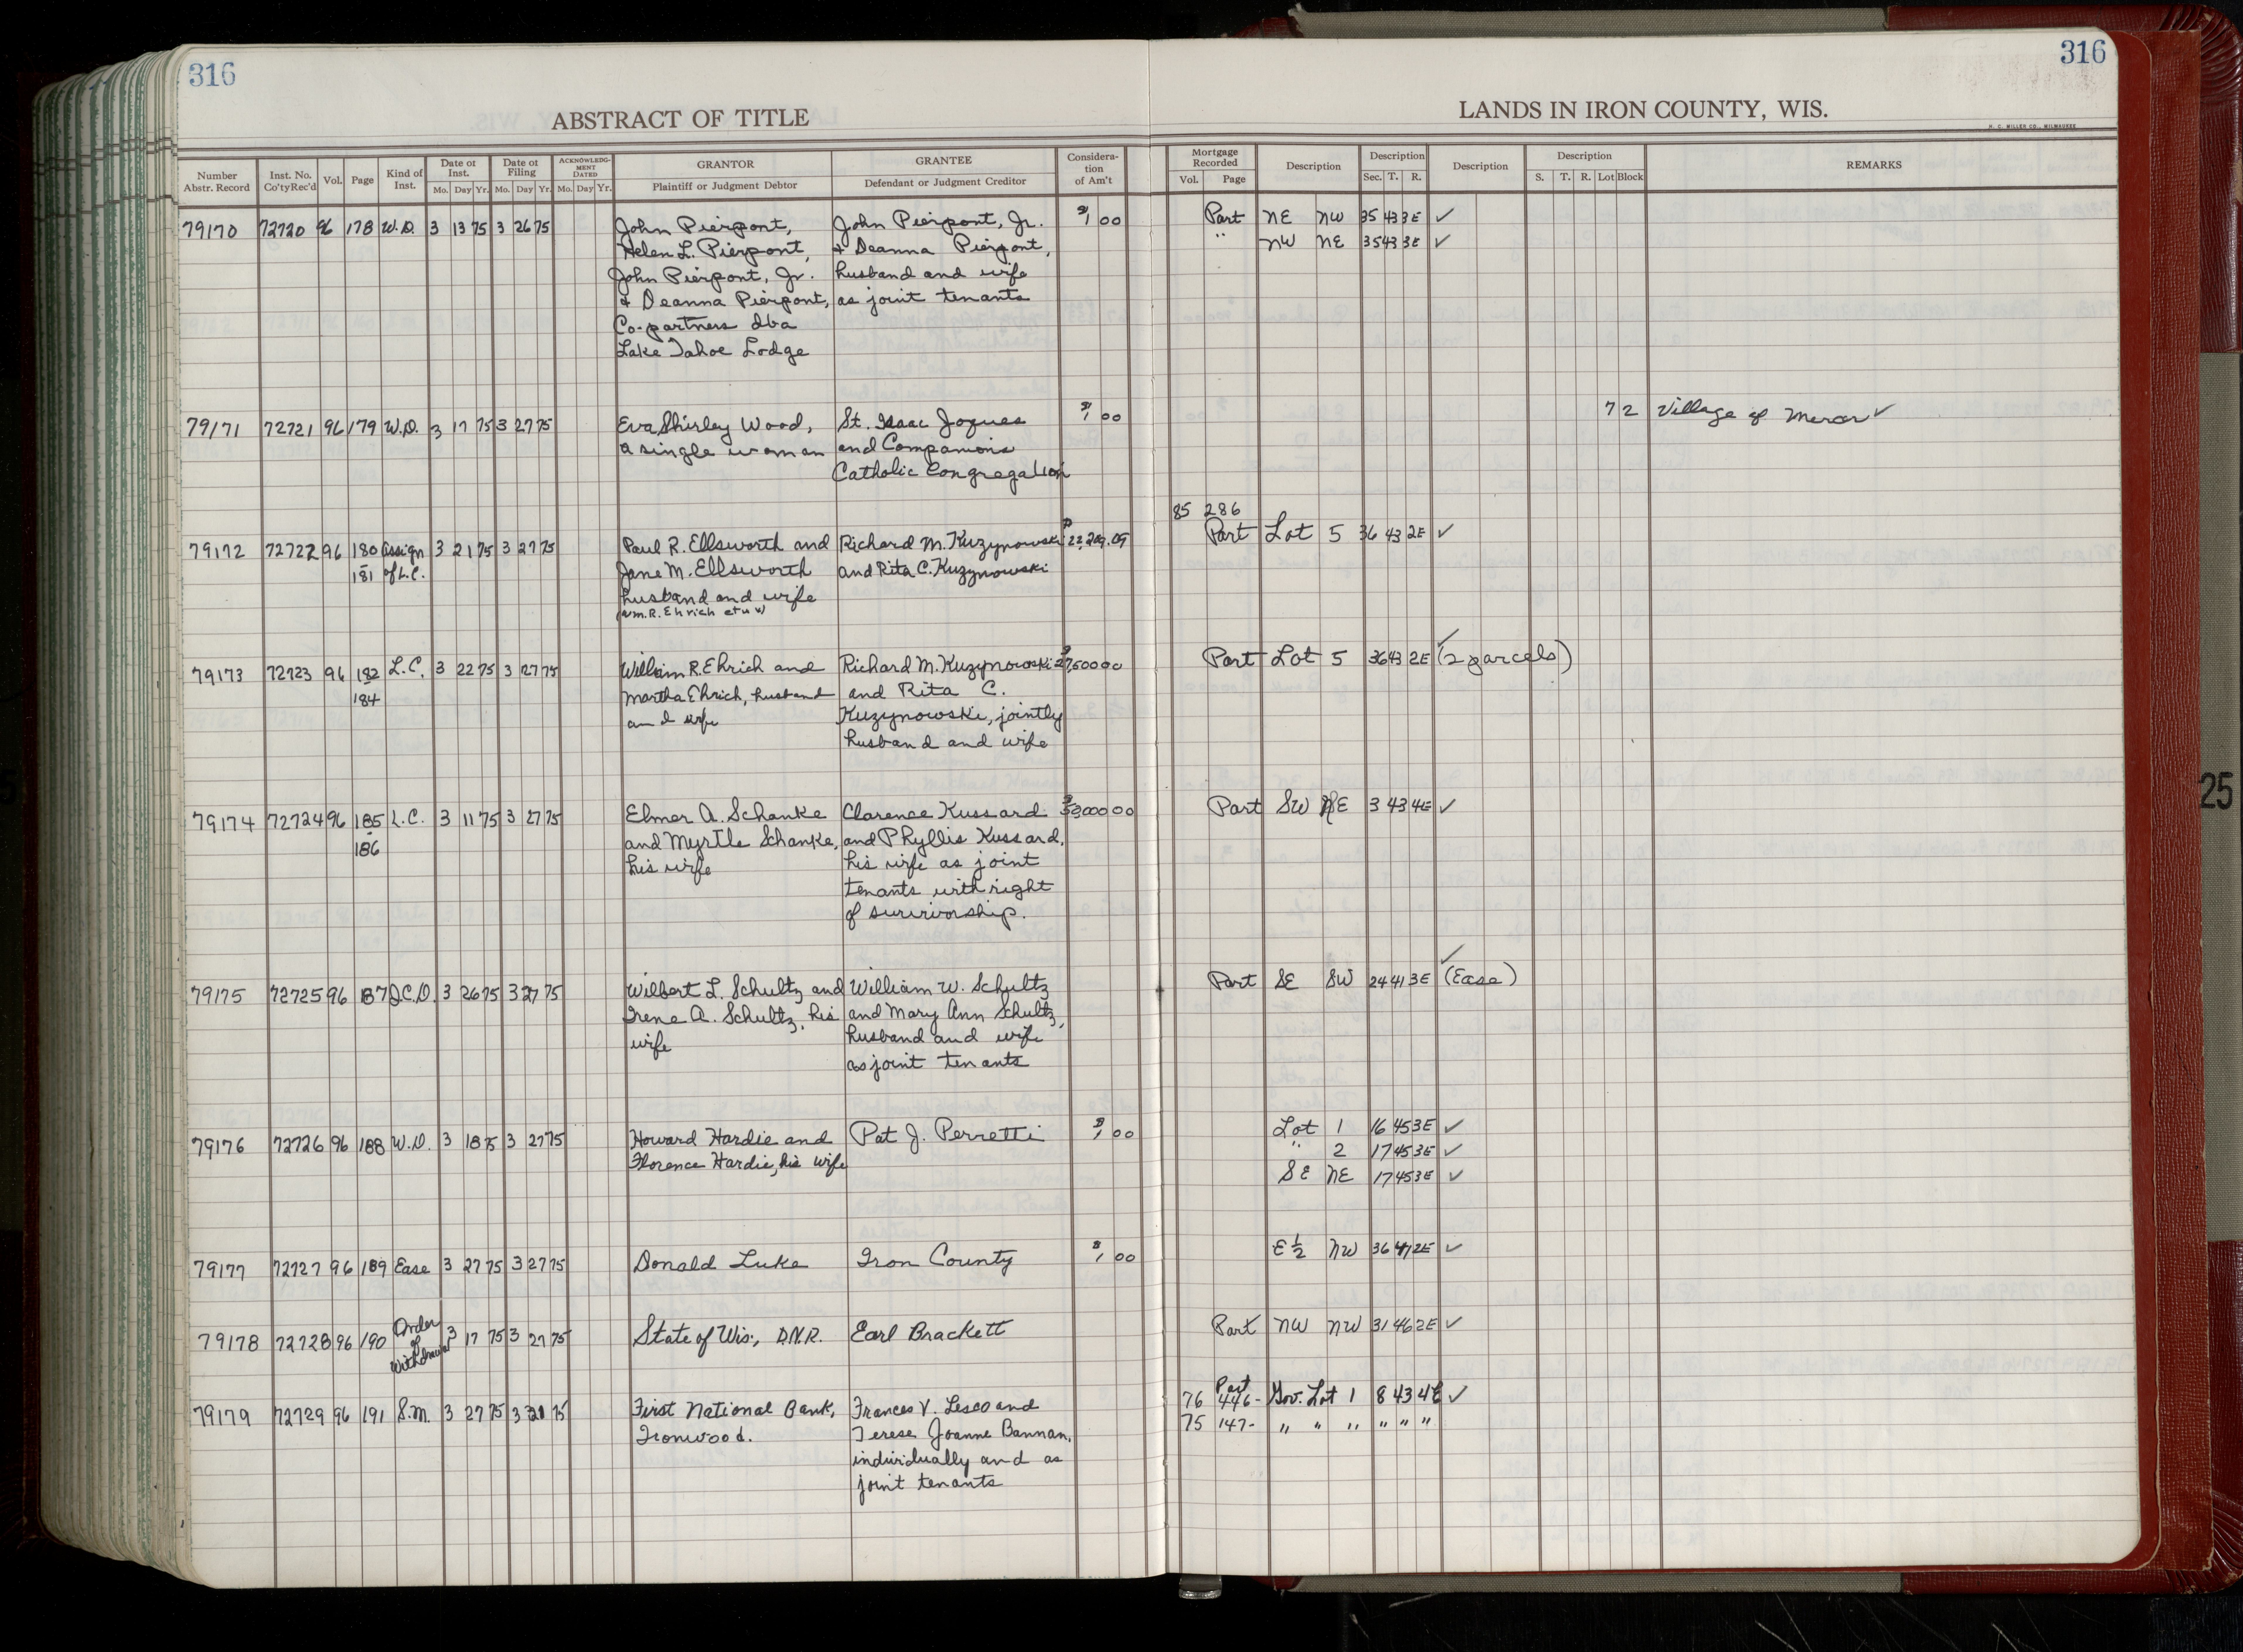 316
316
ABSTRACT OF TITLE
LANDS IN IRON COUNTY, WIS.
H. C. MILLER CO., MILWAUKEE
Number Abstr. Record | Inst. No. Co'ty Rec'd | Vol. | Page | Kind of Inst. | Date of Inst. Mo. Day Yr. | Date of Filing Mo. Day Yr. | ACKNOWLEDGMENT DATED Mo. Day Yr. | GRANTOR Plaintiff or Judgment Debtor | GRANTEE Defendant or Judgment Creditor | Consideration of Am't | Mortgage Recorded Vol. Page | Description | Description Sec. T. R. | Description | Description S. T. R. Lot Block | REMARKS
79170 72720 96 178 W.D. 3 13 75 3 26 75 John Pierpont, John Pierpont, Jr. $1 00 Part NE NW 35 43 3E ✓
Helen L. Pierpont, & Deanna Pierpont, " NW NE 35 43 3E ✓
John Pierpont, Jr. husband and wife
& Deanna Pierpont, as joint tenants
Co-partners dba
Lake Tahoe Lodge
79171 72721 96 179 W.D. 3 17 75 3 27 75 Eva Shirley Wood, St. Isaac Jogues $1 00 7 2 Village of Mercer ✓
a single woman and Companions
Catholic Congregation
85 286
79172 72722 96 180 Assign 3 21 75 3 27 75 Paul R. Ellsworth and Richard M. Kuzynowski Part Lot 5 36 43 2E ✓
181 of L.C. Jane M. Ellsworth and Rita C. Kuzynowski
husband and wife
(Wm. R. Ehrich et ux)
79173 72723 96 182 L.C. 3 22 75 3 27 75 William R. Ehrich and Richard M. Kuzynowski $27,500 00 Part Lot 5 36 43 2E (2 parcels) ✓
184 Martha Ehrich, husband and Rita C.
and wife Kuzynowski, jointly
husband and wife
79174 72724 96 185 L.C. 3 11 75 3 27 75 Elmer A. Schanke Clarence Kussard Part SW NE 3 43 4E ✓
186 and Myrtle Schanke, and Phyllis Kussard,
his wife his wife as joint
tenants with right
of survivorship.
79175 72725 96 187 Q.C.D. 3 26 75 3 27 75 Wilbert L. Schultz and William W. Schultz Part SE SW 24 41 3E (Ease) ✓
Irene A. Schultz, his and Mary Ann Schultz,
wife husband and wife
as joint tenants
79176 72726 96 188 W.D. 3 18 75 3 27 75 Howard Hardie and Pat J. Perretti $1 00 Lot 1 16 45 3E ✓
Florence Hardie, his wife " 2 17 45 3E ✓
SE NE 17 45 3E ✓
79177 72727 96 189 Ease 3 27 75 3 27 75 Donald Luke Iron County $1 00 E½ NW 36 41 2E ✓
79178 72728 96 190 Order of Withdrawal 3 17 75 3 27 75 State of Wis., D.N.R. Earl Brackett Part NW NW 31 46 2E ✓
79179 72729 96 191 S.M. 3 27 75 3 75 First National Bank, Frances V. Lesco and 76 Part 446- Gov. Lot 1 8 43 4E ✓
Ironwood. Terese Joanne Bannan, 75 147- " " " " " "
individually and as
joint tenants
25